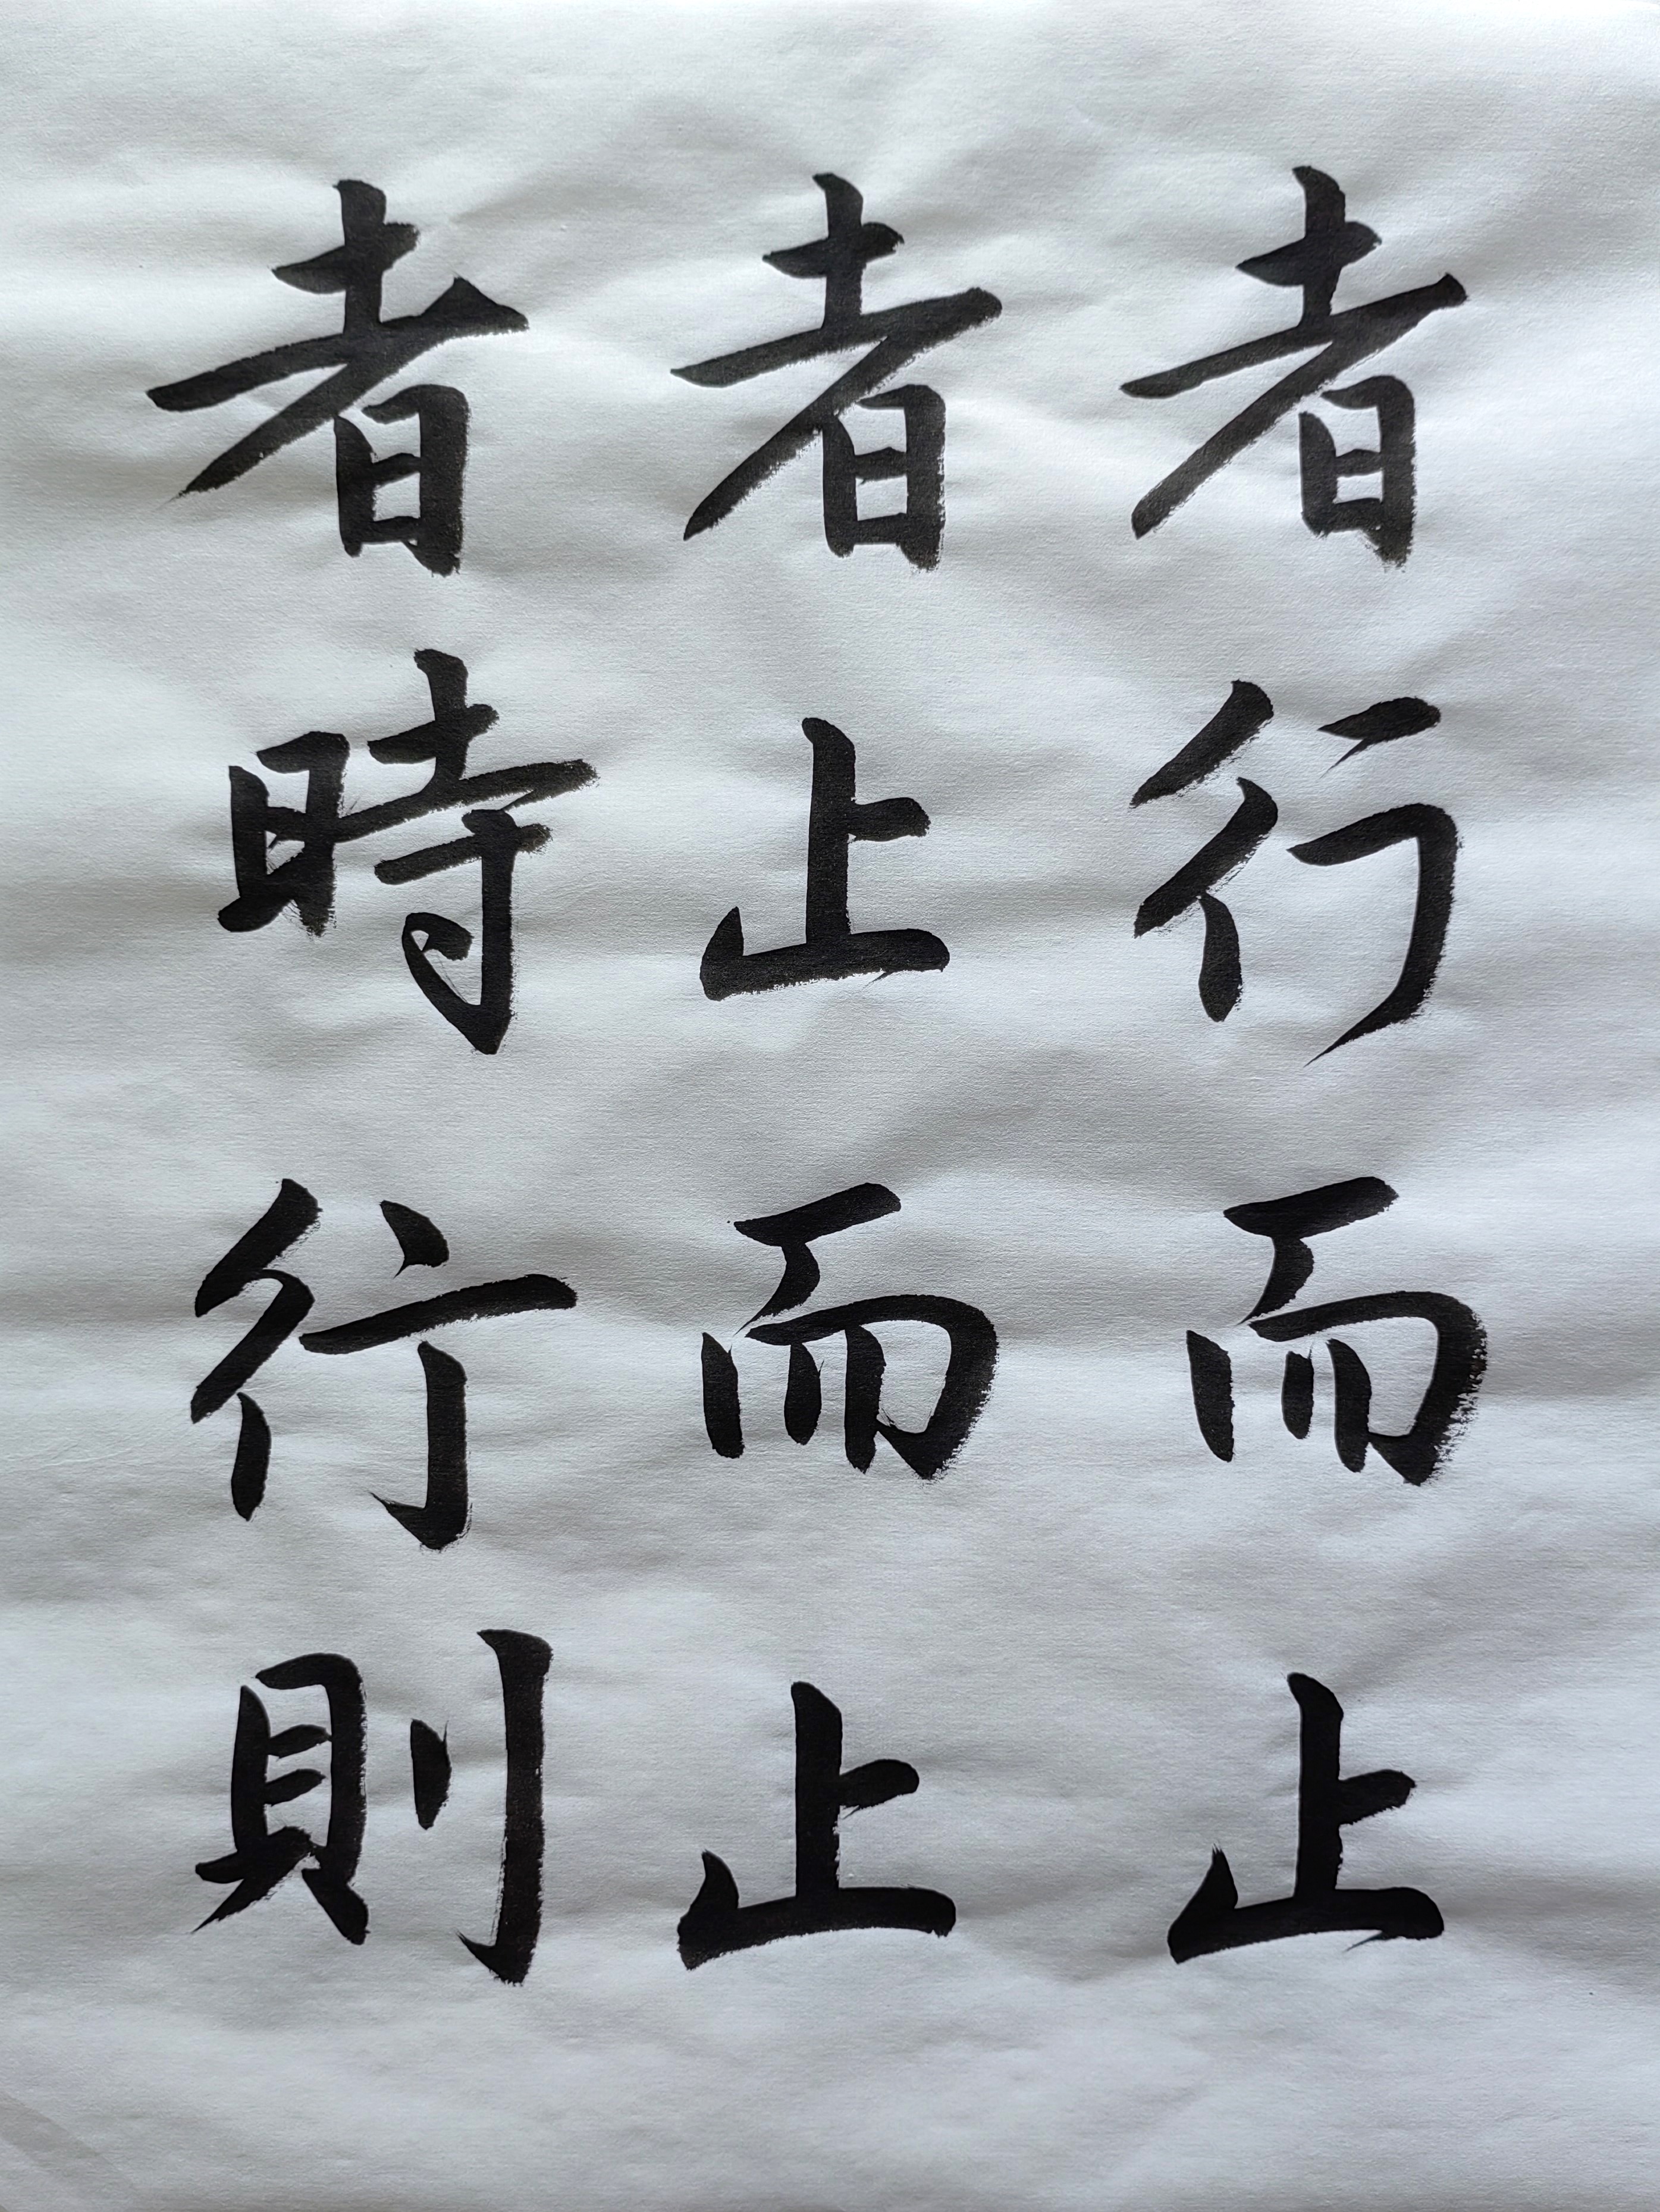 者行而止
者止而止
者時行則